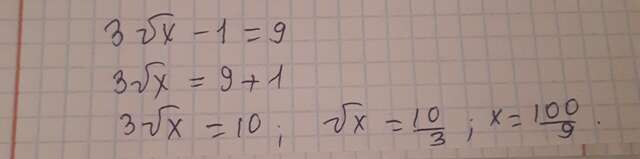 3√x − 1 = 9
3√x = 9 + 1
3√x = 10; √x = 10/3; x = 100/9.